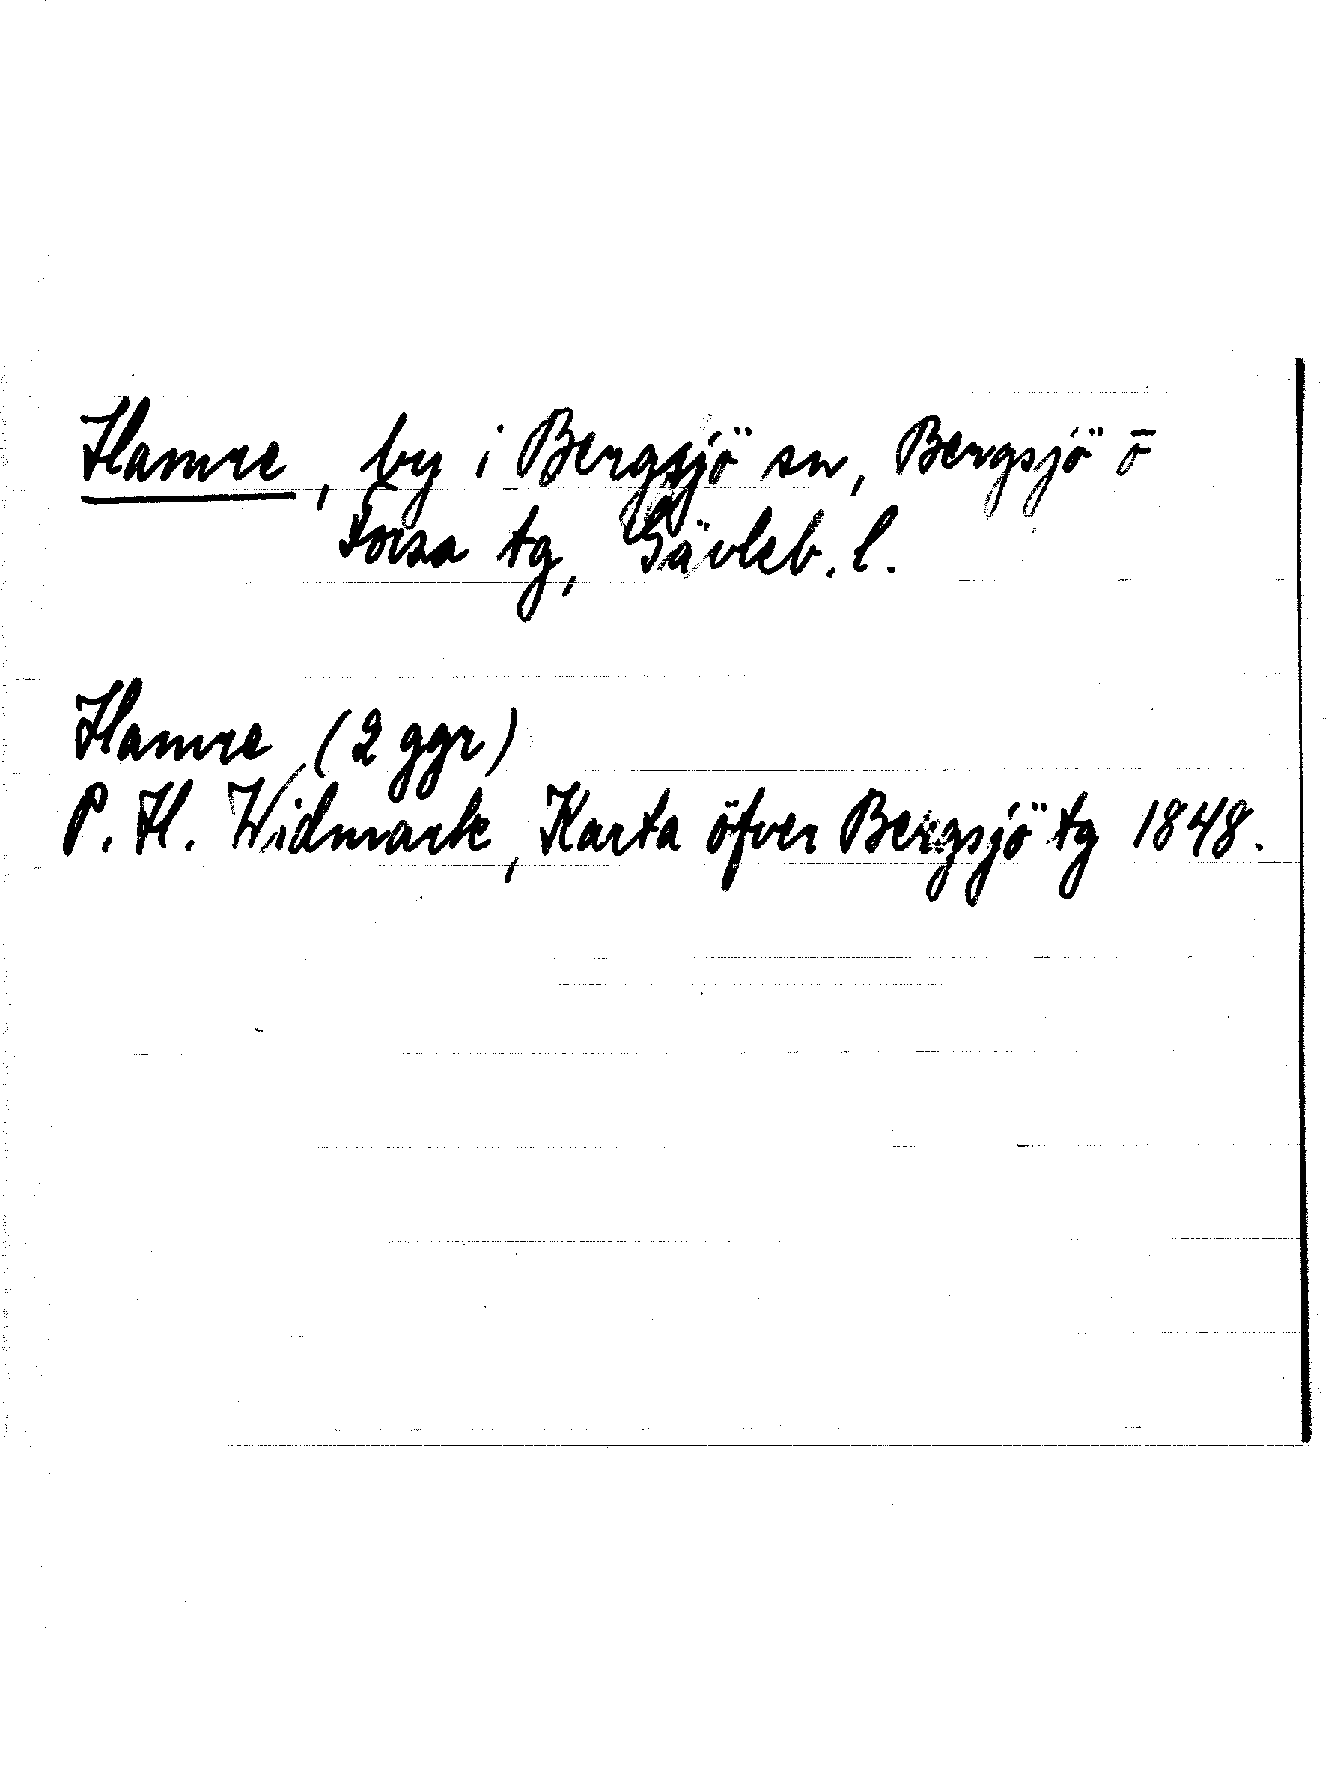 Hamre, by i Bergsjö sn, Bergsjö o
Forsa tg, Gävleb. l.
Hamre (2 ggr)
P. H. Widmark, Karta öfver Bergsjö tg 1848.